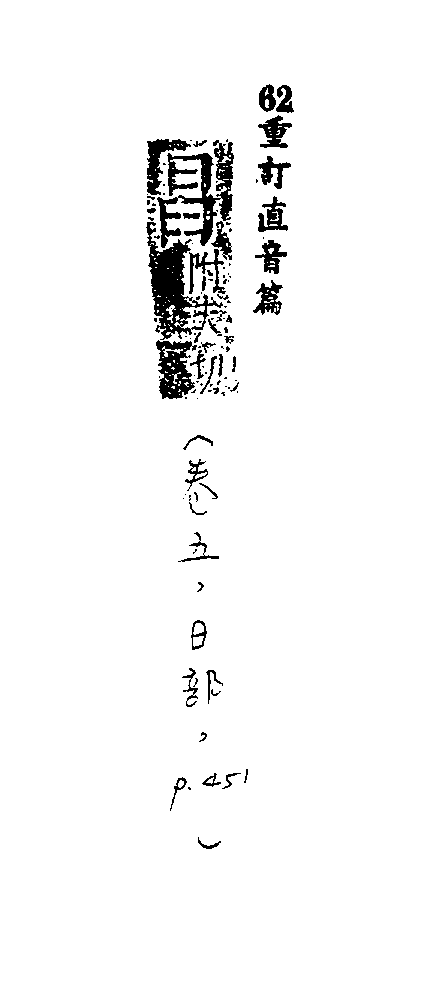 62重訂直音篇
附夫切
（卷五，日部，p.451）